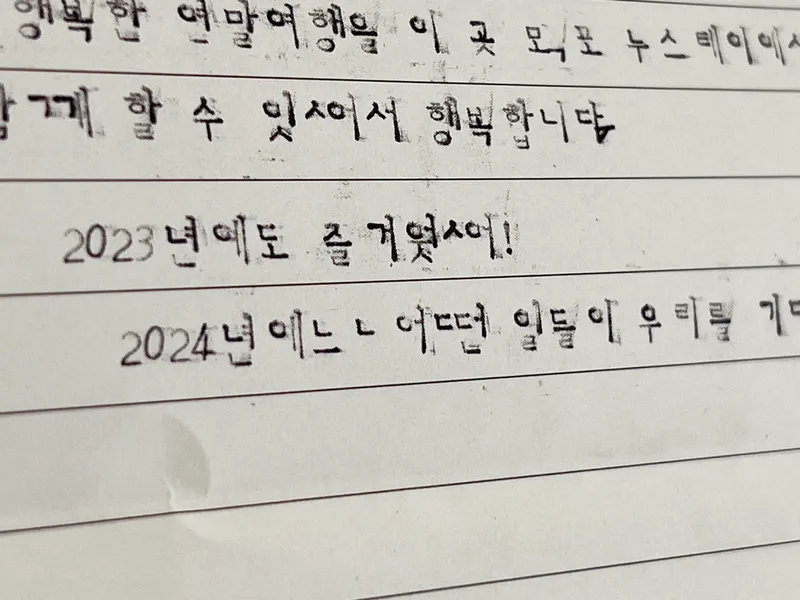 행복한 연말여행을 이 곳 목포 누스테이에서
함께 할 수 있어서 행복합니다.
2023년에도 즐거웠어!
2024년에느ㄴ 어떤 일들이 우리를 기다